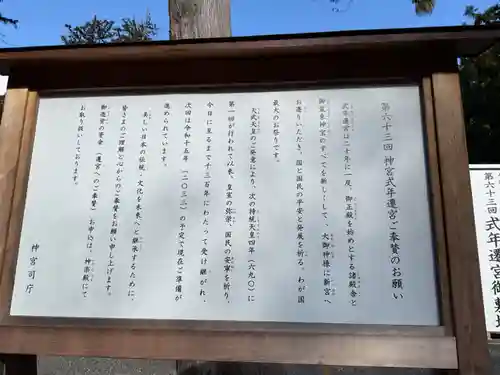 第六十三回 神宮式年遷宮ご奉賛のお願い
式年遷宮は二十年に一度、御正殿を始めとする諸殿舎と
御装束神宝のすべてを新しくして、大御神様に新宮へ
お遷りいただき、国と国民の平安と発展を祈る、わが国
最大のお祭りです。
天武天皇のご発意により、次の持統天皇四年(六九〇)に
第一回が行われて以来、皇室の弥栄、国民の安寧を祈り、
今日に至るまで千三百年にわたって受け継がれ、
次回は令和十五年(二〇三三)の予定で現在ご準備が
進められています。
美しい日本の伝統、文化を未来へと継承するために、
皆さまのご理解と心からのご奉賛をお願い申し上げます。
御造営の資金(遷宮へのご奉賛)お申込は、神楽殿にて
お取り扱いしております。
神宮司庁
第六十三回
式年遷宮御